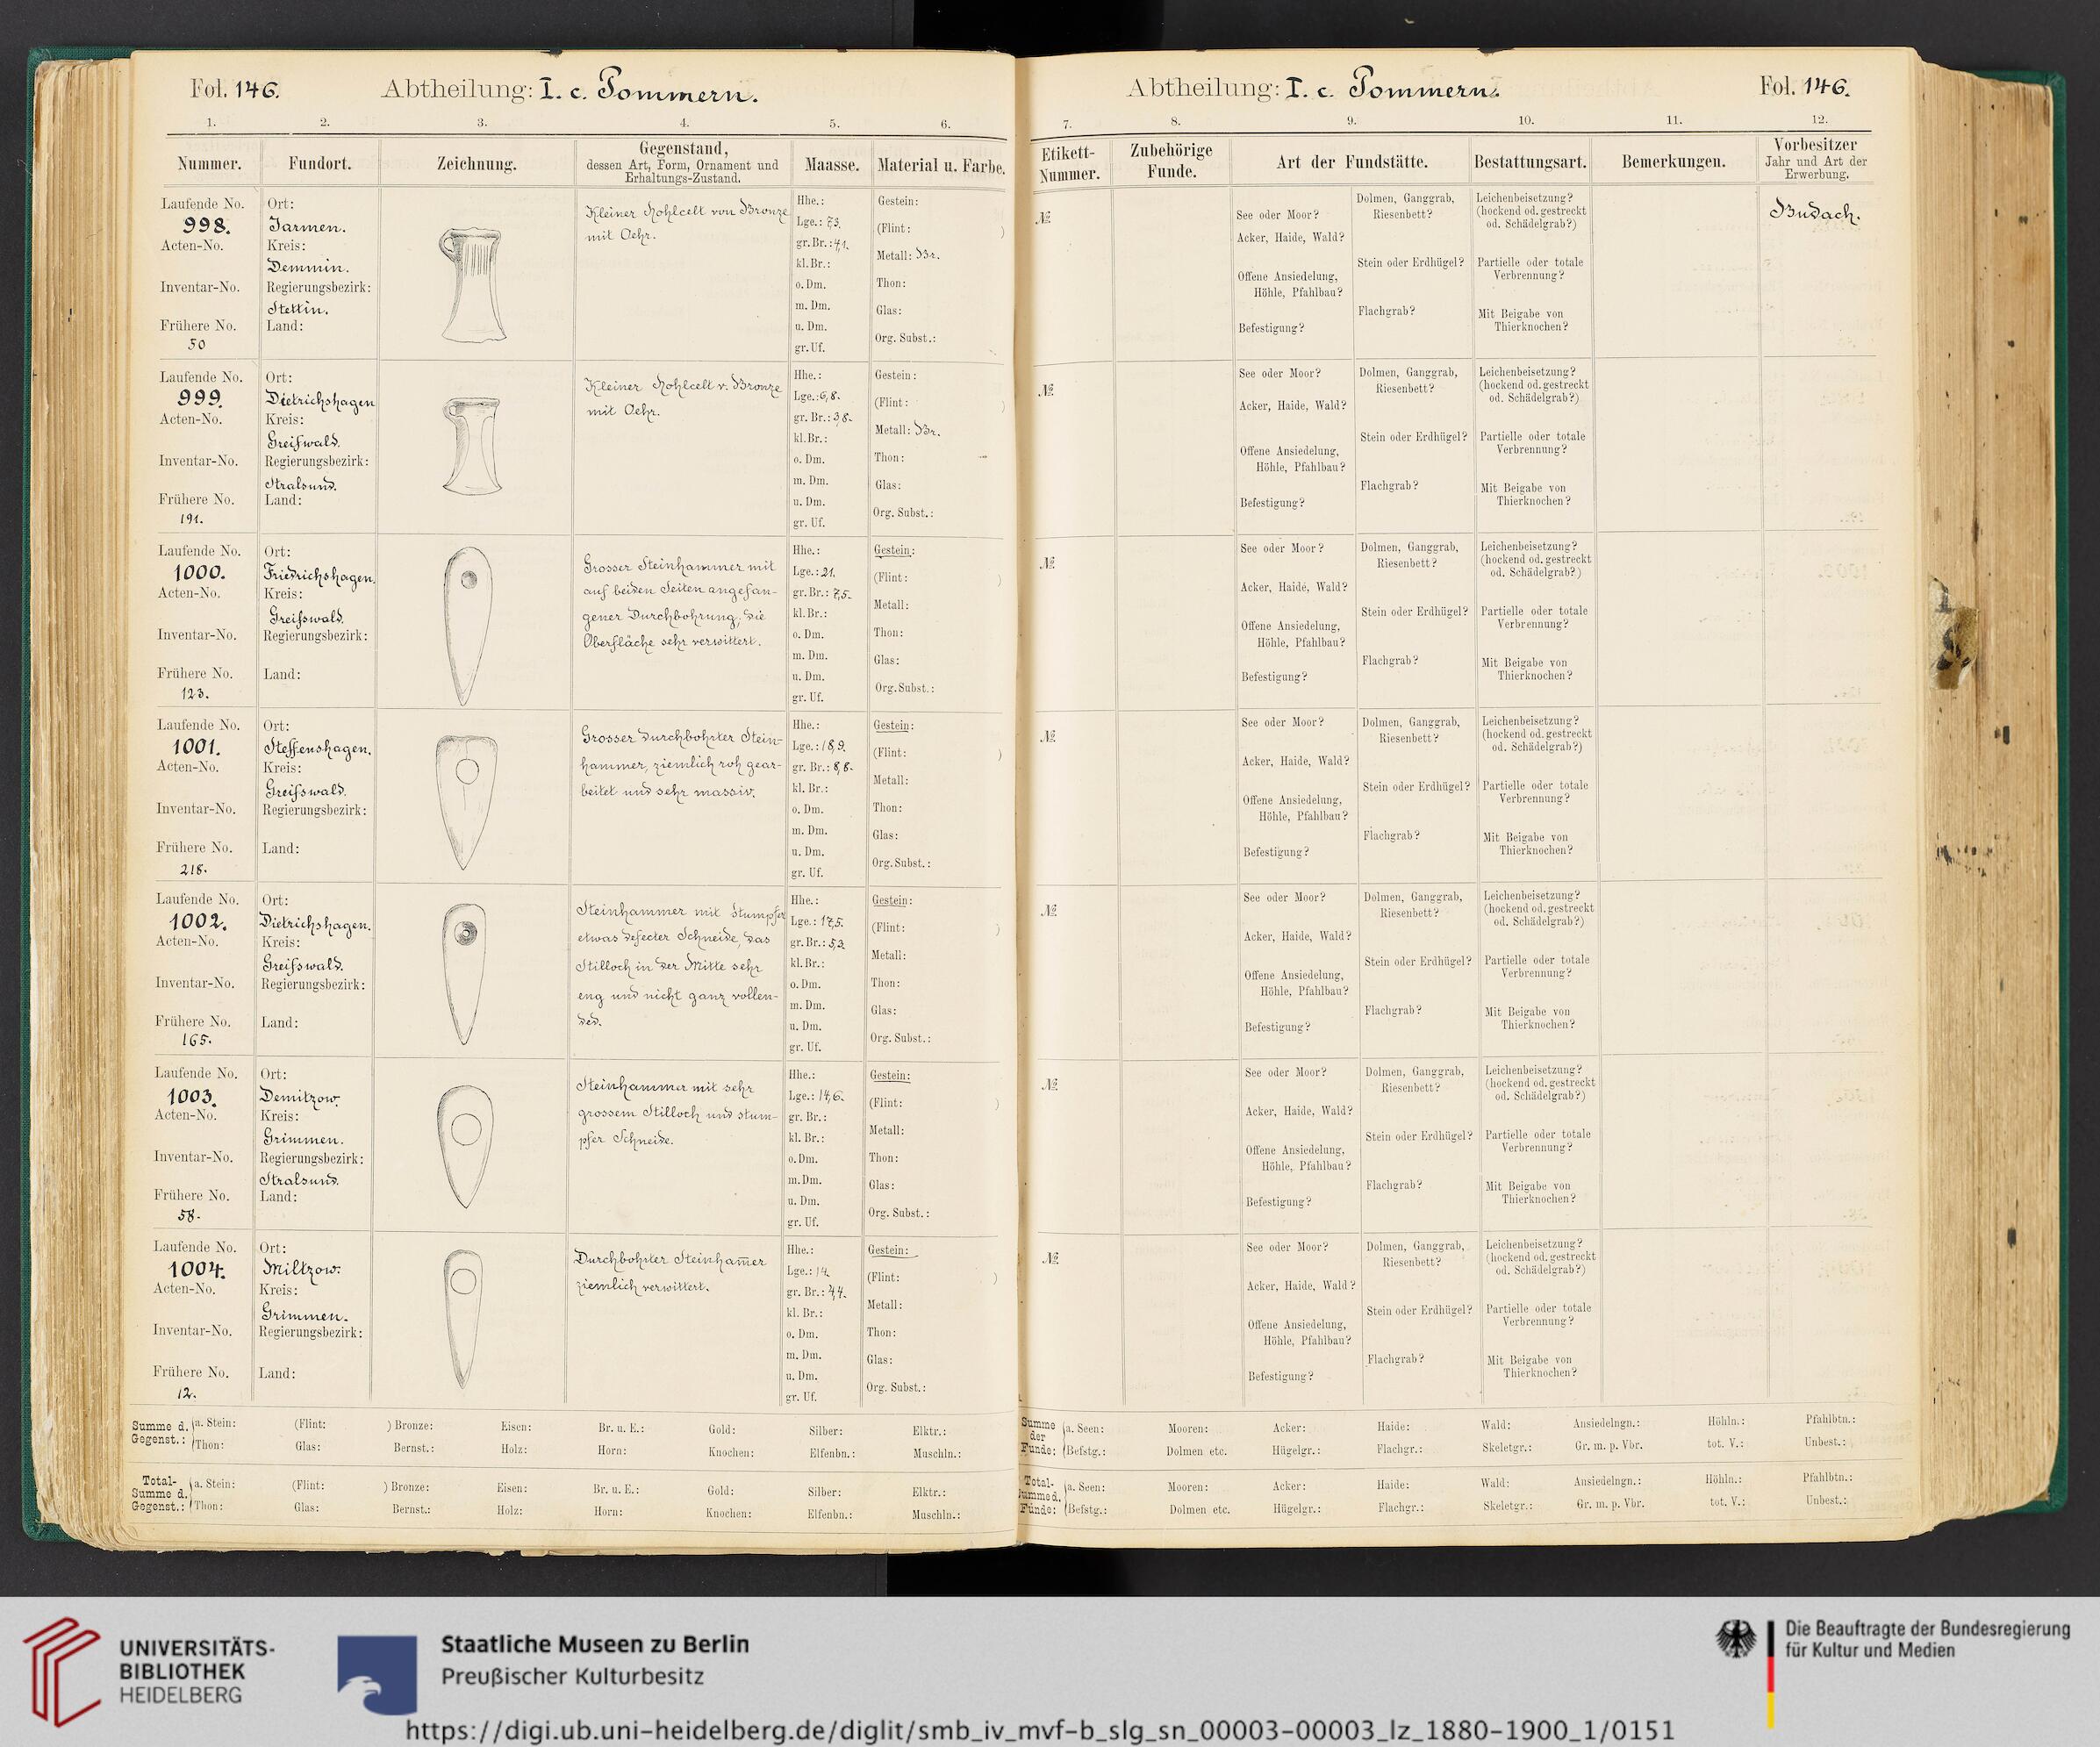 Fol. 146.
Abtheilung: I. c. Pommern.
1. 2. 3. 4. 5. 6.
Nummer. Fundort. Zeichnung. Gegenstand, dessen Art, Form, Ornament und Erhaltungs-Zustand. Maasse. Material u. Farbe.
Laufende No.
998.
Acten-No.
Inventar-No.
Frühere No.
50
Ort:
Jarmen.
Kreis:
Demmin.
Regierungsbezirk:
Stettin.
Land:
Kleiner Hohlcelt von Bronze
mit Oehr.
Hhe.:
Lge.: 7,3.
gr. Br.: 4,1.
kl. Br.:
o. Dm.
m. Dm.
u. Dm.
gr. Uf.
Gestein:
(Flint: )
Metall: Br.
Thon:
Glas:
Org. Subst.:
Laufende No.
999.
Acten-No.
Inventar-No.
Frühere No.
191.
Ort:
Dietrichshagen
Kreis:
Greifswald.
Regierungsbezirk:
Stralsund.
Land:
Kleiner Hohlcelt v. Bronze
mit Oehr.
Hhe.:
Lge.: 6,8.
gr. Br.: 3,8.
kl. Br.:
o. Dm.
m. Dm.
u. Dm.
gr. Uf.
Gestein:
(Flint: )
Metall: Br.
Thon:
Glas:
Org. Subst.:
Laufende No.
1000.
Acten-No.
Inventar-No.
Frühere No.
123.
Ort:
Friedrichshagen.
Kreis:
Greifswald.
Regierungsbezirk:
Land:
Grosser Steinhammer mit
auf beiden Seiten angefan-
gener Durchbohrung; die
Oberfläche sehr verwittert.
Hhe.:
Lge.: 21.
gr. Br.: 7,5.
kl. Br.:
o. Dm.
m. Dm.
u. Dm.
gr. Uf.
Gestein:
(Flint: )
Metall:
Thon:
Glas:
Org. Subst.:
Laufende No.
1001.
Acten-No.
Inventar-No.
Frühere No.
218.
Ort:
Steffenshagen.
Kreis:
Greifswald.
Regierungsbezirk:
Land:
Grosser durchbohrter Stein-
hammer, ziemlich roh gear-
beitet und sehr massiv.
Hhe.:
Lge.: 18,9.
gr. Br.: 8,8.
kl. Br.:
o. Dm.
m. Dm.
u. Dm.
gr. Uf.
Gestein:
(Flint: )
Metall:
Thon:
Glas:
Org. Subst.:
Laufende No.
1002.
Acten-No.
Inventar-No.
Frühere No.
165.
Ort:
Dietrichshagen.
Kreis:
Greifswald.
Regierungsbezirk:
Land:
Steinhammer mit stumpfer
etwas defecter Schneide, das
Stilloch in der Mitte sehr
eng und nicht ganz vollen-
ded.
Hhe.:
Lge.: 17,5.
gr. Br.: 5,2.
kl. Br.:
o. Dm.
m. Dm.
u. Dm.
gr. Uf.
Gestein:
(Flint: )
Metall:
Thon:
Glas:
Org. Subst.:
Laufende No.
1003.
Acten-No.
Inventar-No.
Frühere No.
58.
Ort:
Demitzow.
Kreis:
Grimmen.
Regierungsbezirk:
Stralsund.
Land:
Steinhammer mit sehr
grossem Stilloch und stum-
pfer Schneide.
Hhe.:
Lge.: 14,6.
gr. Br.:
kl. Br.:
o. Dm.
m. Dm.
u. Dm.
gr. Uf.
Gestein:
(Flint: )
Metall:
Thon:
Glas:
Org. Subst.:
Laufende No.
1004.
Acten-No.
Inventar-No.
Frühere No.
12.
Ort:
Miltzow.
Kreis:
Grimmen.
Regierungsbezirk:
Land:
Durchbohrter Steinham̅er
ziemlich verwittert.
Hhe.:
Lge.: 14.
gr. Br.: 4,4.
kl. Br.:
o. Dm.
m. Dm.
u. Dm.
gr. Uf.
Gestein:
(Flint: )
Metall:
Thon:
Glas:
Org. Subst.:
Summe d. Gegenst.: a. Stein: (Flint: ) Bronze: Eisen: Br. u. E.: Gold: Silber: Elktr.:
Thon: Glas: Bernst.: Holz: Horn: Knochen: Elfenbn.: Muschln.:
Total-Summe d. Gegenst.: a. Stein: (Flint: ) Bronze: Eisen: Br. u. E.: Gold: Silber: Elktr.:
Thon: Glas: Bernst.: Holz: Horn: Knochen: Elfenbn.: Muschln.:
Abtheilung: I. c. Pommern.
Fol. 146.
7. 8. 9. 10. 11. 12.
Etikett-Nummer. Zubehörige Funde. Art der Fundstätte. Bestattungsart. Bemerkungen. Vorbesitzer Jahr und Art der Erwerbung.
№
See oder Moor?
Acker, Haide, Wald?
Offene Ansiedelung,
Höhle, Pfahlbau?
Befestigung?
Dolmen, Ganggrab,
Riesenbett?
Stein oder Erdhügel?
Flachgrab?
Leichenbeisetzung?
(hockend od. gestreckt
od. Schädelgrab?)
Partielle oder totale
Verbrennung?
Mit Beigabe von
Thierknochen?
Budach.
№
See oder Moor?
Acker, Haide, Wald?
Offene Ansiedelung,
Höhle, Pfahlbau?
Befestigung?
Dolmen, Ganggrab,
Riesenbett?
Stein oder Erdhügel?
Flachgrab?
Leichenbeisetzung?
(hockend od. gestreckt
od. Schädelgrab?)
Partielle oder totale
Verbrennung?
Mit Beigabe von
Thierknochen?
№
See oder Moor?
Acker, Haide, Wald?
Offene Ansiedelung,
Höhle, Pfahlbau?
Befestigung?
Dolmen, Ganggrab,
Riesenbett?
Stein oder Erdhügel?
Flachgrab?
Leichenbeisetzung?
(hockend od. gestreckt
od. Schädelgrab?)
Partielle oder totale
Verbrennung?
Mit Beigabe von
Thierknochen?
№
See oder Moor?
Acker, Haide, Wald?
Offene Ansiedelung,
Höhle, Pfahlbau?
Befestigung?
Dolmen, Ganggrab,
Riesenbett?
Stein oder Erdhügel?
Flachgrab?
Leichenbeisetzung?
(hockend od. gestreckt
od. Schädelgrab?)
Partielle oder totale
Verbrennung?
Mit Beigabe von
Thierknochen?
№
See oder Moor?
Acker, Haide, Wald?
Offene Ansiedelung,
Höhle, Pfahlbau?
Befestigung?
Dolmen, Ganggrab,
Riesenbett?
Stein oder Erdhügel?
Flachgrab?
Leichenbeisetzung?
(hockend od. gestreckt
od. Schädelgrab?)
Partielle oder totale
Verbrennung?
Mit Beigabe von
Thierknochen?
№
See oder Moor?
Acker, Haide, Wald?
Offene Ansiedelung,
Höhle, Pfahlbau?
Befestigung?
Dolmen, Ganggrab,
Riesenbett?
Stein oder Erdhügel?
Flachgrab?
Leichenbeisetzung?
(hockend od. gestreckt
od. Schädelgrab?)
Partielle oder totale
Verbrennung?
Mit Beigabe von
Thierknochen?
№
See oder Moor?
Acker, Haide, Wald?
Offene Ansiedelung,
Höhle, Pfahlbau?
Befestigung?
Dolmen, Ganggrab,
Riesenbett?
Stein oder Erdhügel?
Flachgrab?
Leichenbeisetzung?
(hockend od. gestreckt
od. Schädelgrab?)
Partielle oder totale
Verbrennung?
Mit Beigabe von
Thierknochen?
Summe der Funde: a. Seen: Mooren: Acker: Haide: Wald: Ansiedelngn.: Höhln.: Pfahlbtn.:
Befstg.: Dolmen etc. Hügelgr.: Flachgr.: Skeletgr.: Gr. m. p. Vbr. tot. V.: Unbest.:
Total-Summe d. Funde: a. Seen: Mooren: Acker: Haide: Wald: Ansiedelngn.: Höhln.: Pfahlbtn.:
Befstg.: Dolmen etc. Hügelgr.: Flachgr.: Skeletgr.: Gr. m. p. Vbr. tot. V.: Unbest.:
UNIVERSITÄTS-
BIBLIOTHEK
HEIDELBERG
Staatliche Museen zu Berlin
Preußischer Kulturbesitz
Die Beauftragte der Bundesregierung
für Kultur und Medien
https://digi.ub.uni-heidelberg.de/diglit/smb_iv_mvf-b_slg_sn_00003-00003_lz_1880-1900_1/0151